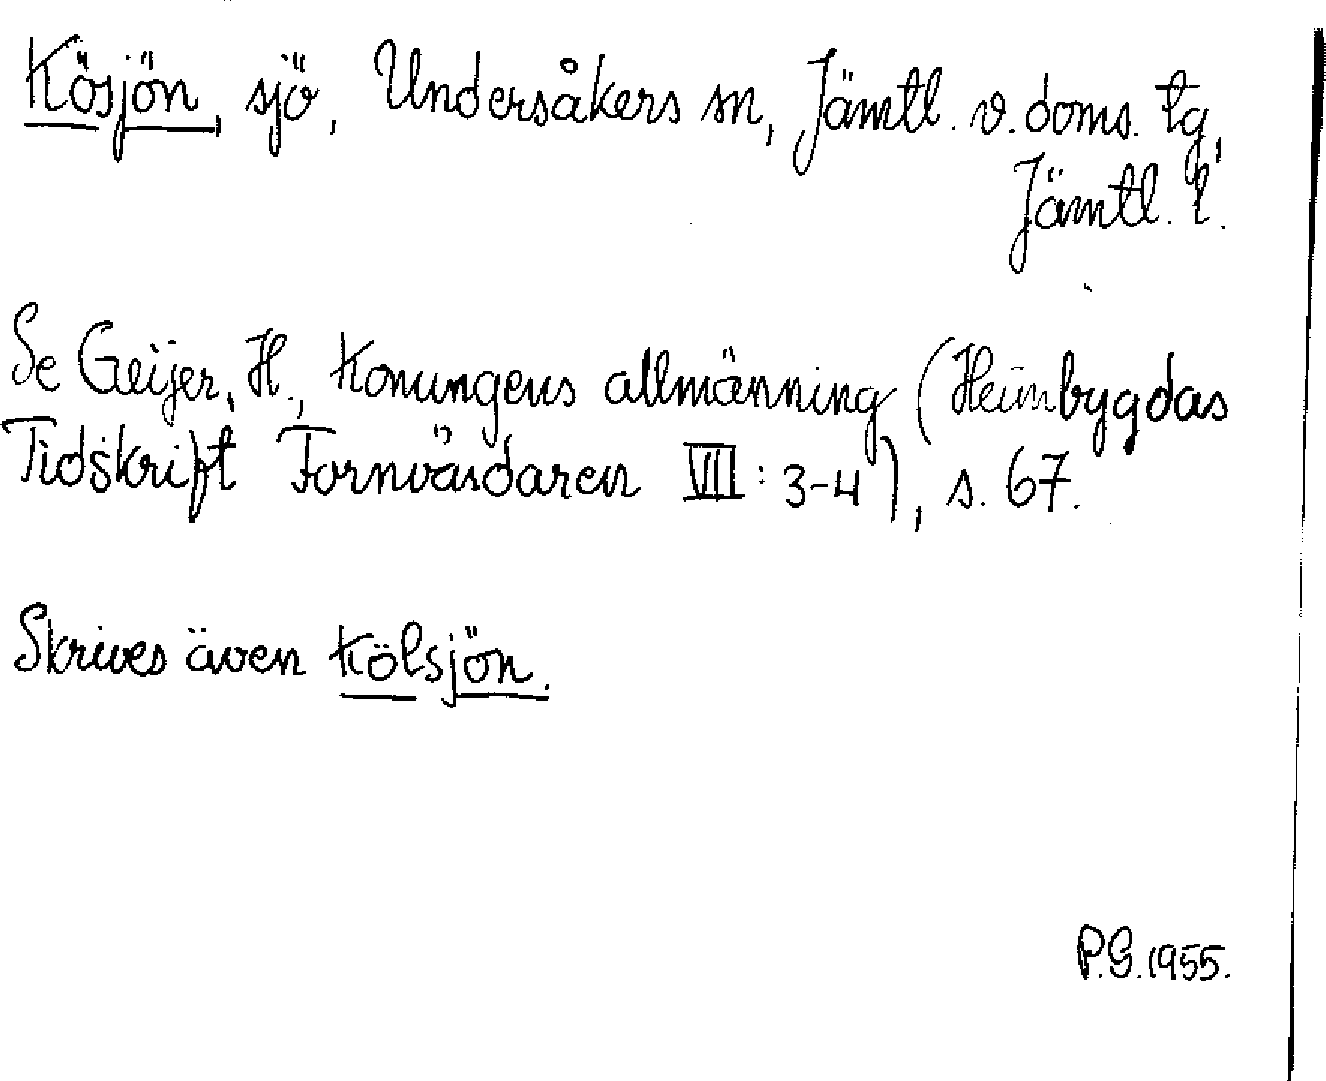 Kösjön, sjö, Undersåkers sn, Jämtl. v. doms. tg,
Jämtl. l.
Se Geijer, H., Konungens allmänning (Heimbygdas
Tidskrift Fornvårdaren VII: 3-4), s. 67.
Skrives även Kölsjön.
P.G. 1955.